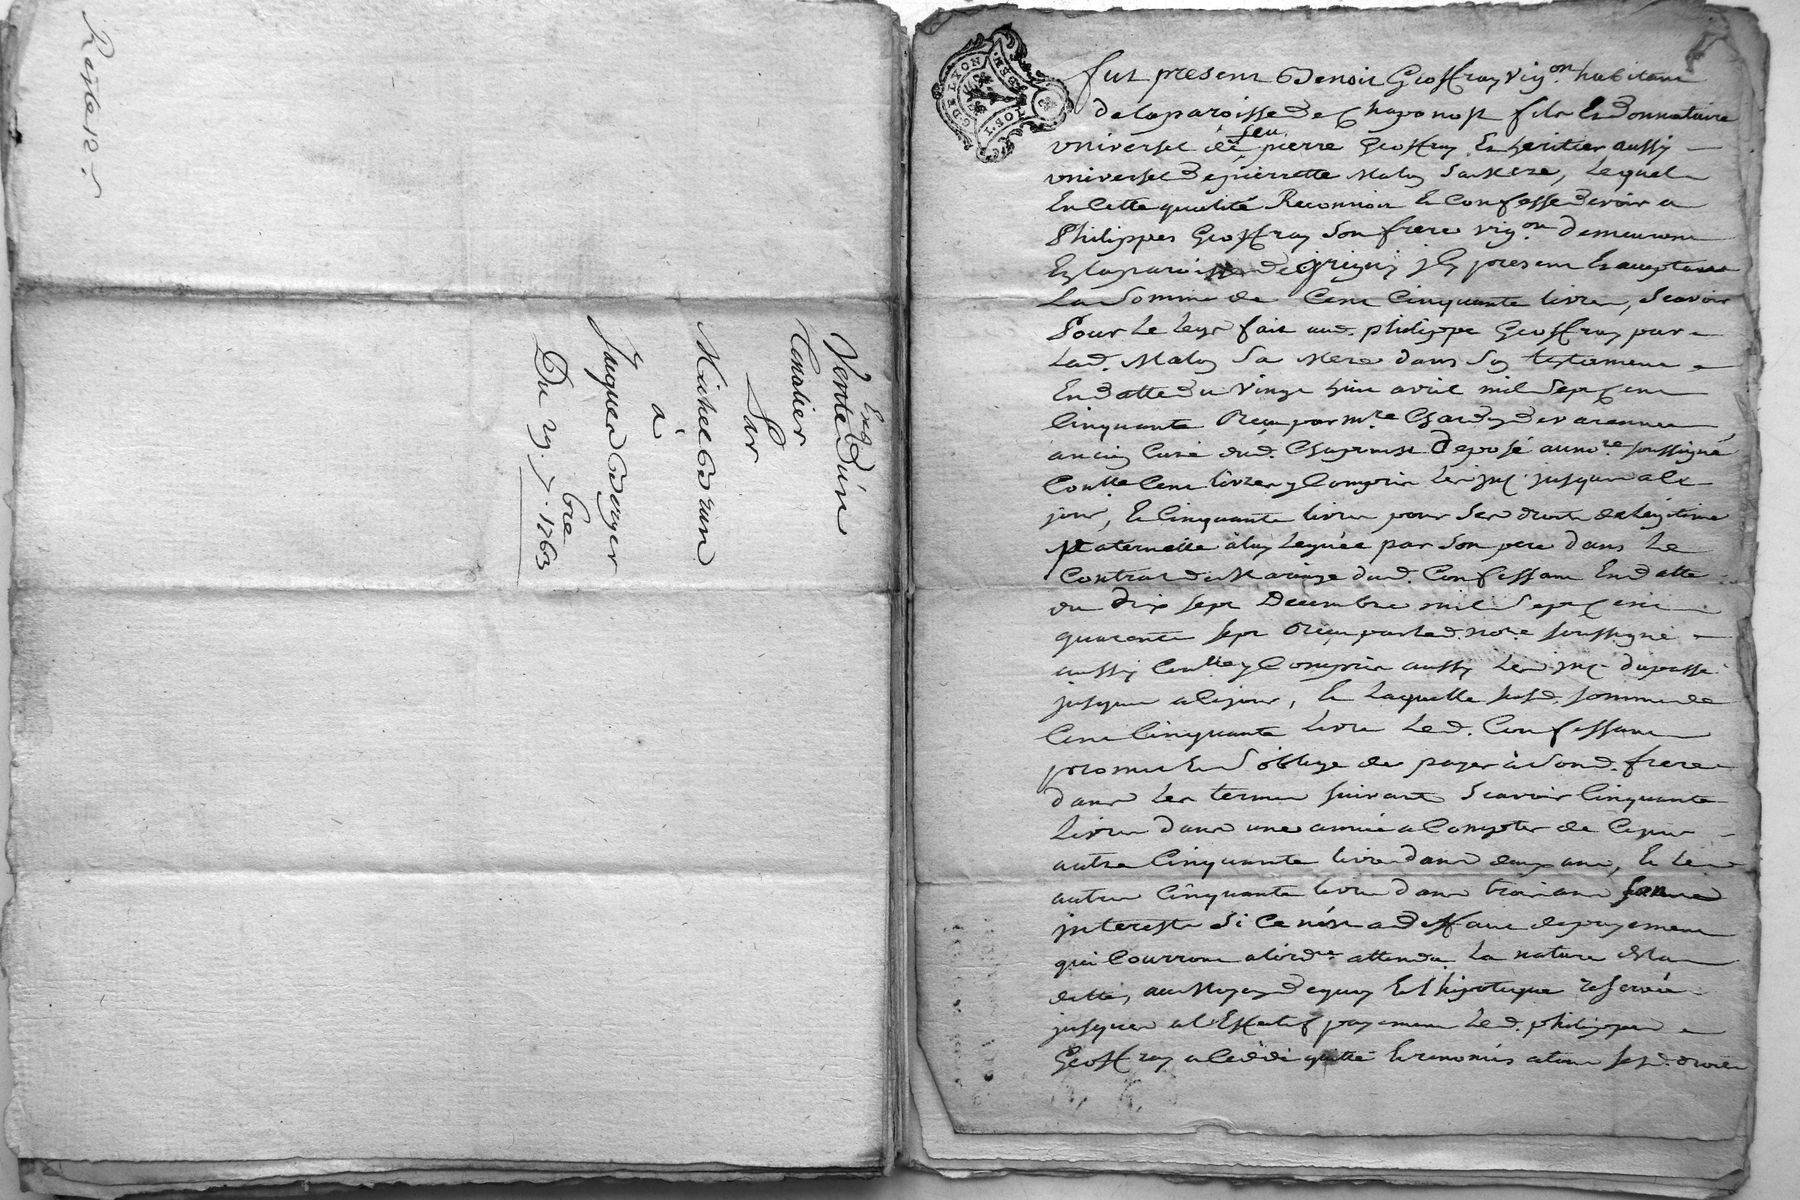 Vente d'un
Tenalier
Par
Michel Brun
à
Jaques Berger
Du 29. 7.bre 1763
G. DE LYON
fut present Benoit Geoffray vig.on habitant
de la paroisse de Chaponost fils Et donnataire
universel de feu pierre Geoffray Et heritier aussy
universel de pierrette Maby Sa Mere, Lequel
En Cette qualité Reconnoit Et Confesse devoir a
Philippes Geoffray Son frere vig.on demeurant
En la paroisse de Grigny jcy present Et acceptant
La Somme de Cent Cinquante livres, Scavoir
Pour Le Legs fait aud. philippe Geoffray par
Lad. Maby Sa Mere dans Son testament
En datte du vingt huit avril mil Sept Cent
Cinquante Reçu par M.re Devarennes
ancien Curé dud. Chaponost deposé au no.re soussigné
Cent livres y Compris Les jusques a Ce
jour, Et Cinquante livres pour Ses droits de Legitime
paternelle à luy Leguée par Son pere dans Le
Contrat de Mariage dud. Confessant En datte
du dix sept Decembre mil Sept Cent
quarante sept Reçu par Led. no.re soussigné
aussy y Compris aussy Les du passé
jusques a Ce jour, Et Laquelle susd. somme de
Cent Cinquante livres Led. Confessant
promet Et S'oblige de payer à Sond. frere
dans Les termes suivant Scavoir Cinquante
Livres dans une année a Compter de Ce jour
autre Cinquante livres dans deux ans, Et Les
autres Cinquante livres dans trois ans sans
interests Si Ce n'est a deffaut de payement
qui Courront attendu La nature de la
dette, au Moyen de quoy Et L'hipoteque reservée
jusques a L'Effectif payement Led. philippes
Geoffray a Cedé quitté Et remis a tous Sesd. droits